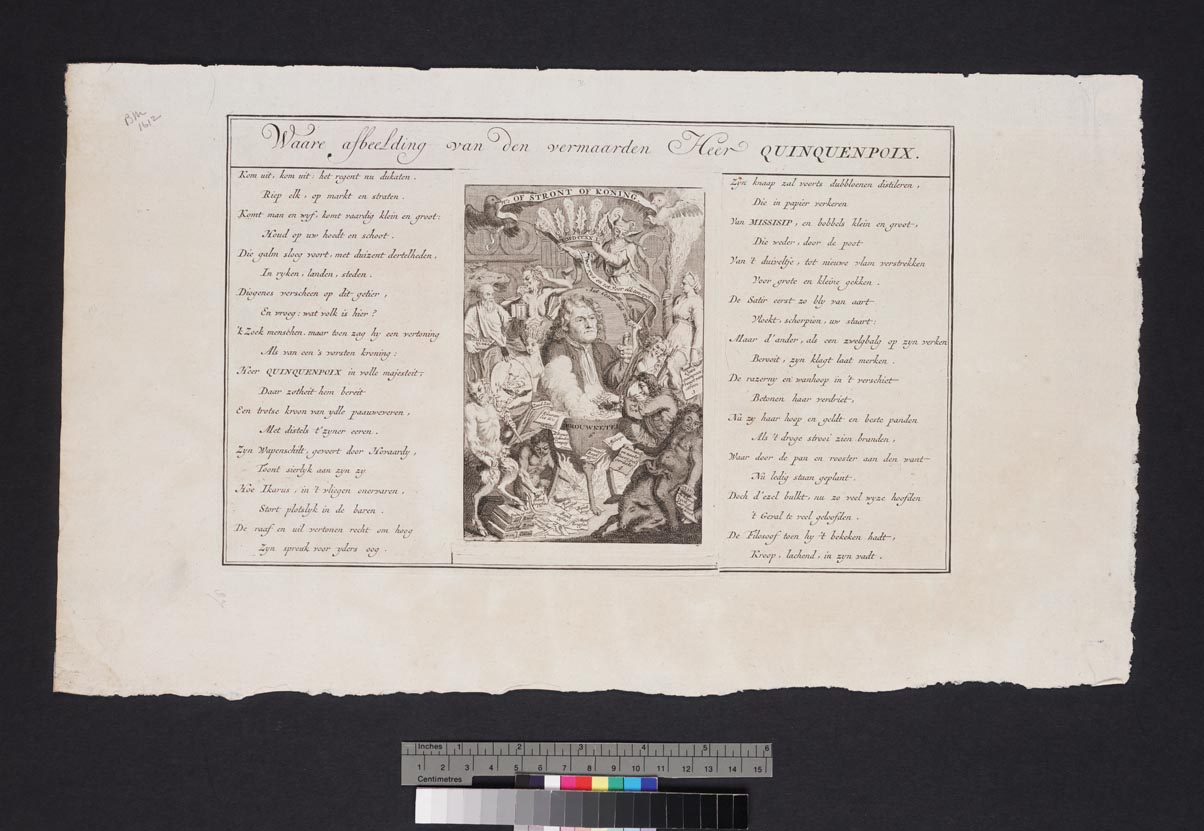 BM
1612
Waare afbeelding van den vermaarden Heer QUINQUENPOIX.
Kom uit, kom uit: het regent nu dukaten.
Riep elk, op markt en straten.
Komt man en wyf, komt vaardig klein en groot:
Houd op uw hoedt en schoot.
Die galm sloeg voort, met duizent dertelheden,
In ryken, landen, steden.
Diogenes verscheen op dit getier,
En vroeg: wat volk is hier?
'k Zoek menschen, maar toen zag hy een vertoning
Als van een 's vorsten kroning:
Heer QUINQUENPOIX in volle majesteit:
Daar zotheit hem bereit
Een trotse kroon van ydle paauweveren,
Met distels t'zyner eeren.
Zyn Wapenschilt, gevoert door Hovaardy,
Toont sierlyk aan zyn zy
Hoe Ikarus, in 't vliegen onervaren,
Stort plotslyk in de baren.
De raaf en uil vertonen recht om hoog
Zyn spreuk voor yders oog.
OF STRONT OF KONING
MDCCXX
BROUWKETEL
Zyn knaap zal voorts dubbloenen distileren,
Die in papier verkeren
Van MISSISIP, en bobbels klein en groot,
Die weder, door de poot
Van 't duiveltje, tot nieuwe vlam verstrekken
Voor grote en kleine gekken.
De Satir eerst zo bly van aart
Vloekt, schorpion, uw staart:
Maar d'ander, als een zwelgbalg op zyn verken
Berooit, zyn klagt laat merken.
De razerny en wanhoop in 't verschiet
Betonen haar verdriet,
Nu zy haar hoop en geldt en beste panden
Als 't droge strooi zien branden,
Waar door de pan en rooster aan den want
Nu ledig staan geplant.
Doch d'ezel bulkt, nu zo veel wyze hoofden
't Geval te veel geloofden.
De Filosoof toen hy 't bekeken hadt,
Kroop, lachend, in zyn vadt.
Inches 1 2 3 4 5 6
1 2 3 4 5 6 7 8 9 10 11 12 13 14 15
Centimetres